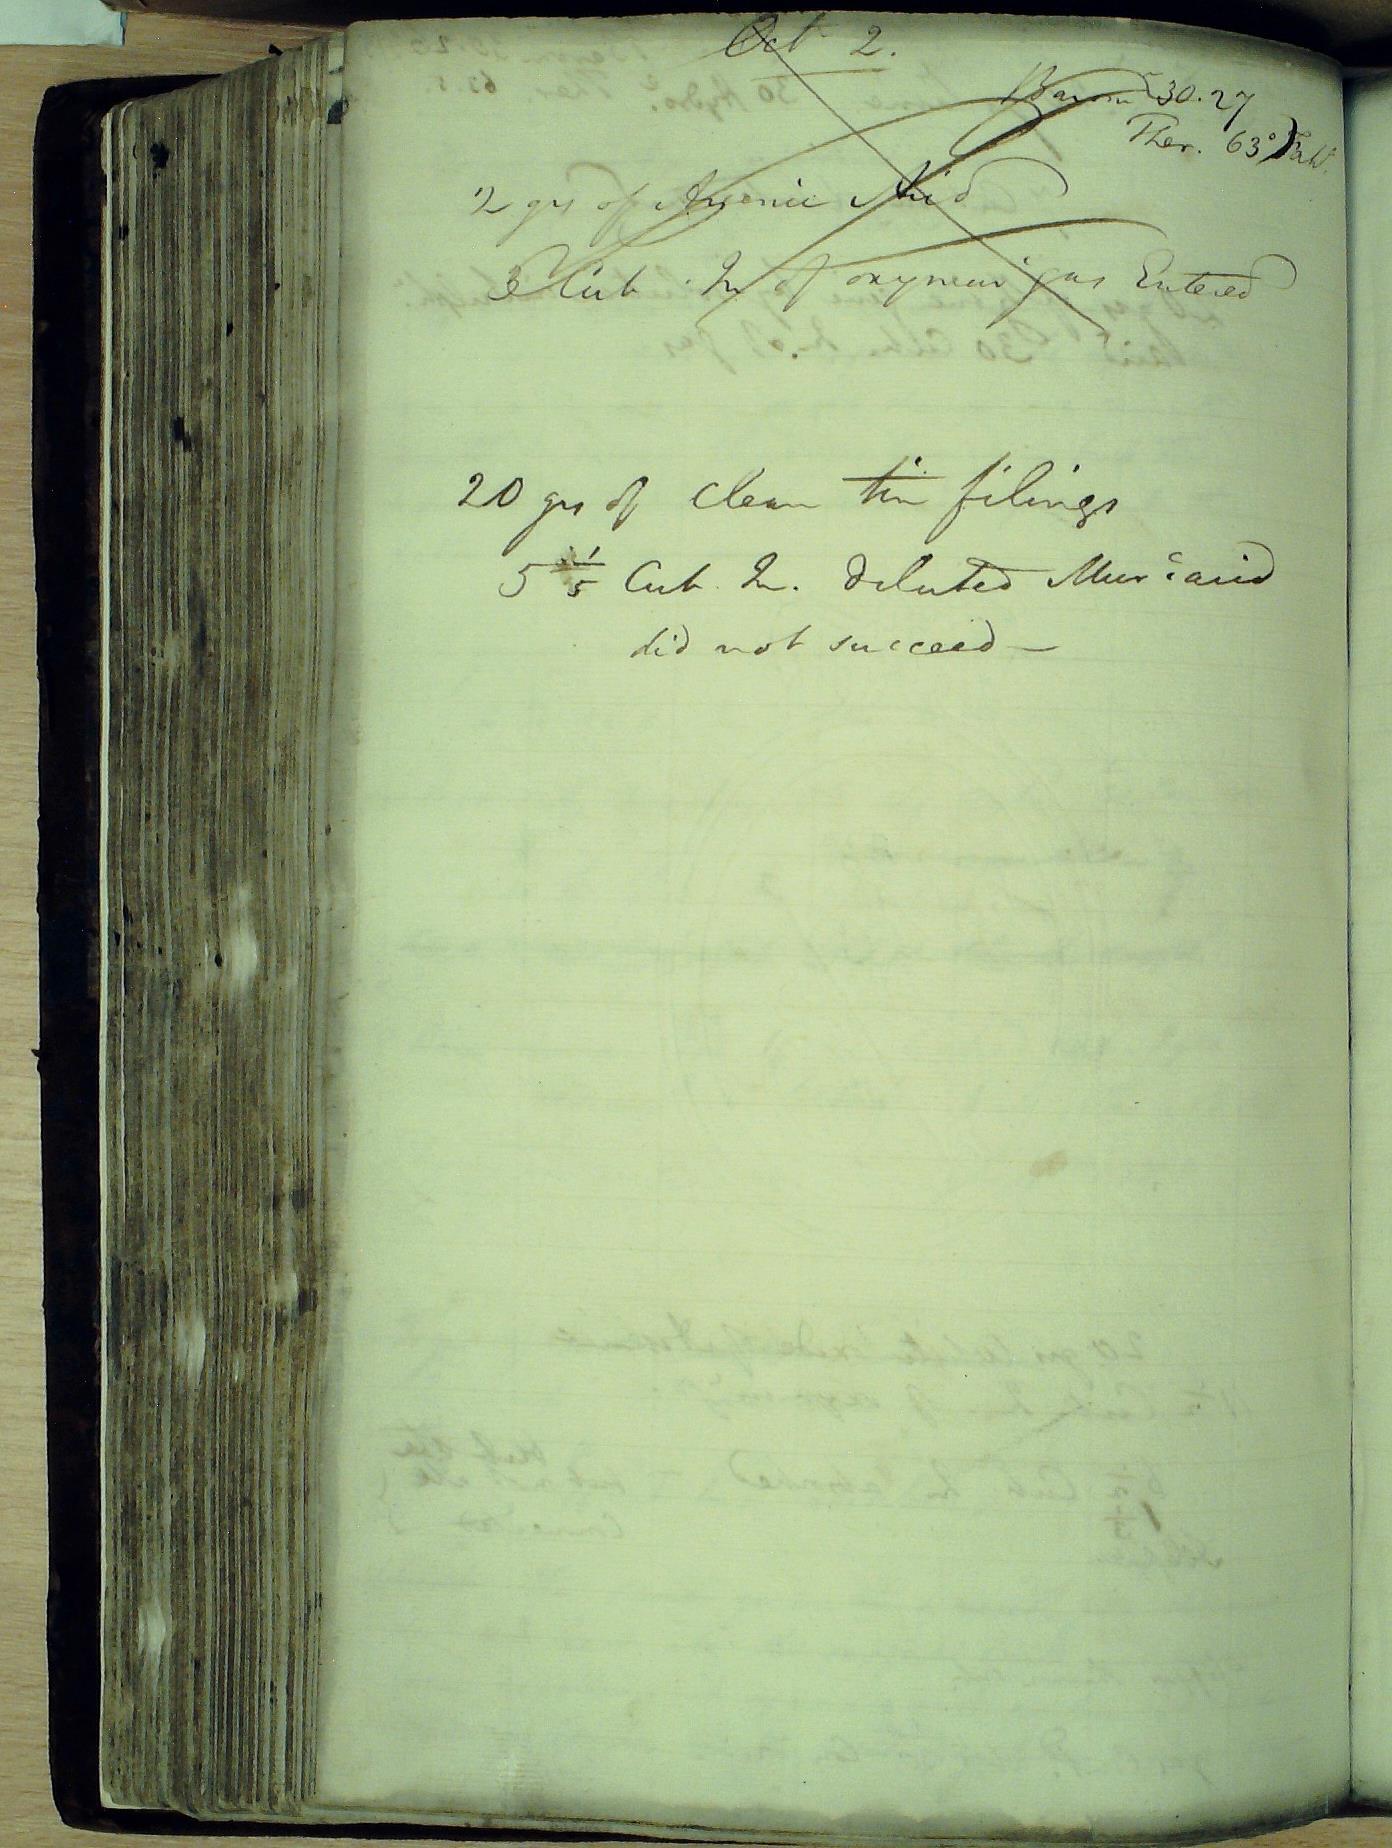 Oct 2.
Barom 30.27
Ther. 63° Faht.
2 grs of Arsenic Acid
3 Cub. In of oxymur gas Entered
20 grs of clean tin filings
5 1/5 Cub. In. diluted Murc acid
did not succeed —